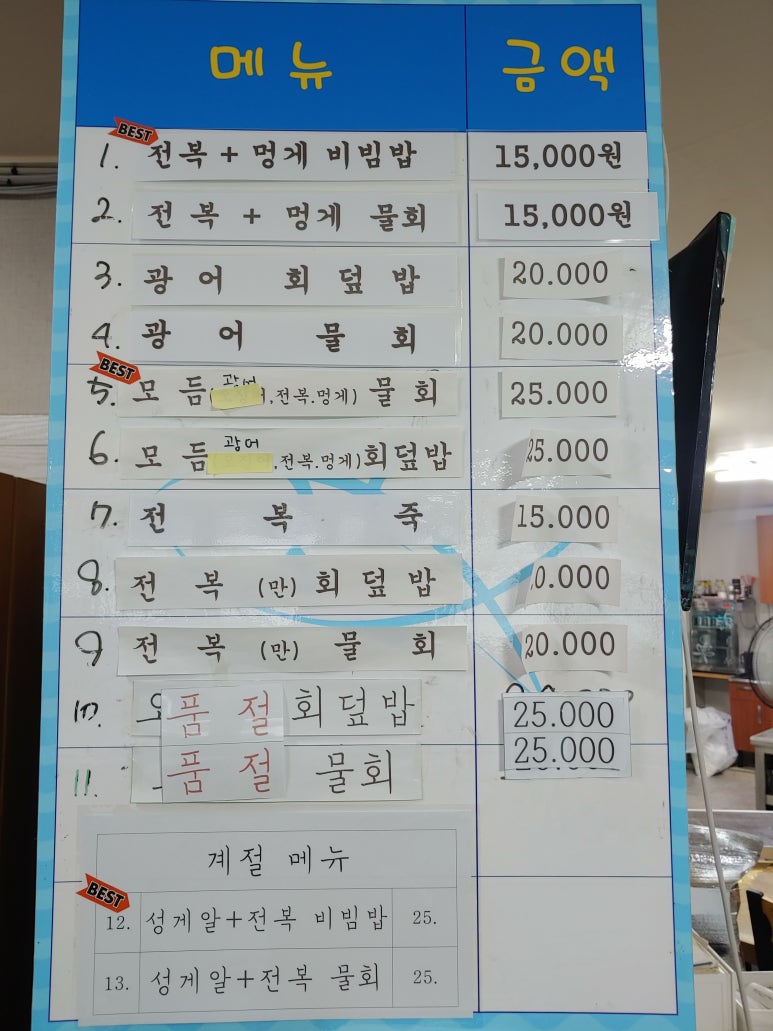 메뉴 금액
BEST
1. 전복 + 멍게 비빔밥 15,000원
2. 전복 + 멍게 물회 15,000원
3. 광어 회덮밥 20.000
4. 광어 물회 20.000
BEST
5. 모듬(광어,전복.멍게) 물회 25.000
6. 모듬 광어,전복.멍게) 회덮밥 25.000
7. 전복죽 15.000
8. 전복 (만) 회덮밥 0.000
9 전복 (만) 물회 20.000
10. 품절 회덮밥 25.000
11. 품절 물회 25.000
계절 메뉴
BEST
12. 성게알+전복 비빔밥 25.
13. 성게알+전복 물회 25.